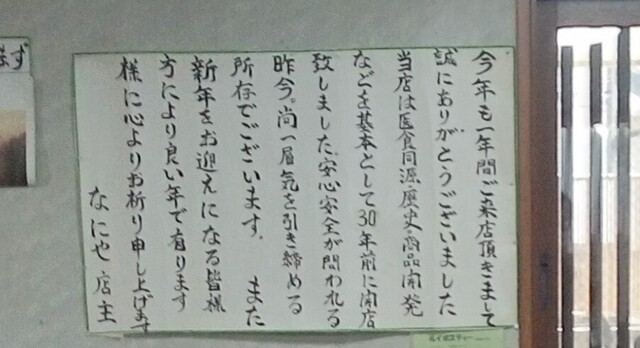 今年も一年間ご来店頂きまして
誠にありがとうございました
当店は医食同源・歴史・商品開発
などを基本として30年前に開店
致しました。安心安全が問われる
昨今。尚一層気を引き締める
所存でございます。また
新年をお迎えになる皆様
方により良い年で有ります
様に心よりお祈り申し上げます
なにや店主
ます